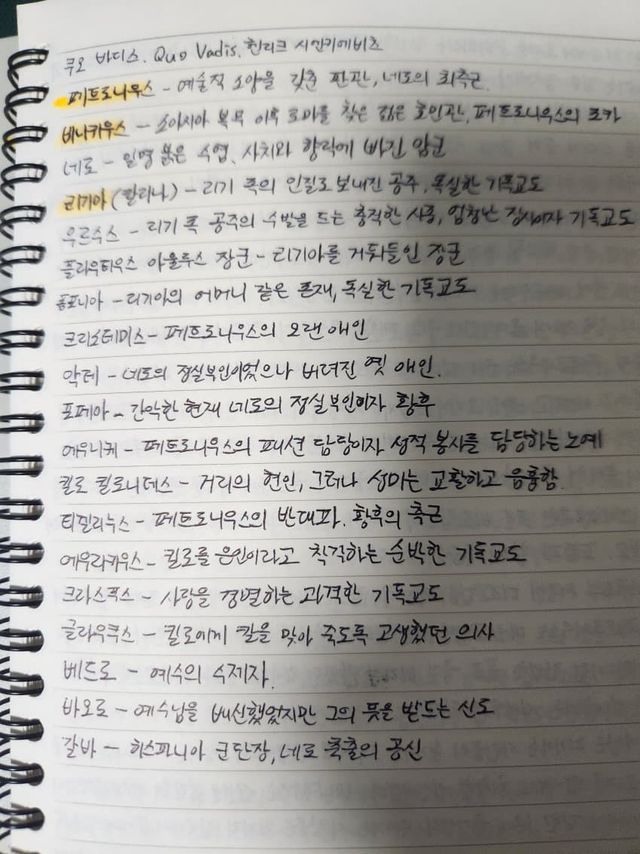 쿠오 바디스. Quo Vadis. 헨리크 시엔키에비츠
페트로니우스 - 예술적 소양을 갖춘 판관, 네로의 최측근.
비니키우스 - 소아시아 복무 이후 로마를 찾은 젊은 호민관, 페트로니우스의 조카
네로 - 일명 붉은 수염, 사치와 향락에 빠진 암군
리기아 (칼리나) - 리기 족의 인질로 보내진 공주, 독실한 기독교도
우르수스 - 리기 족 공주의 수발을 드는 충직한 시종, 엄청난 장사이자 기독교도
플라우티우스 아울루스 장군 - 리기아를 거둬들인 장군
폼포니아 - 리기아의 어머니 같은 존재, 독실한 기독교도
크리소테미스 - 페트로니우스의 오랜 애인
악테 - 네로의 정실부인이었으나 버려진 옛 애인.
포페아 - 간악한 현재 네로의 정실부인이자 황후
에우니케 - 페트로니우스의 패션 담당이자 성적 봉사를 담당하는 노예
킬로 킬로니데스 - 거리의 현인, 그러나 성미는 교활하고 음흉함.
티길리누스 - 페트로니우스의 반대파. 황후의 측근
에우리키우스 - 킬로를 은인이라고 착각하는 순박한 기독교도
크리스푸스 - 사랑을 경멸하는 과격한 기독교도
글라우쿠스 - 킬로에게 칼을 맞아 죽도록 고생했던 의사
베드로 - 예수의 수제자.
바오로 - 예수님을 배신했었지만 그의 뜻을 받드는 신도
갈바 - 히스파니아 군단장, 네로 축출의 공신